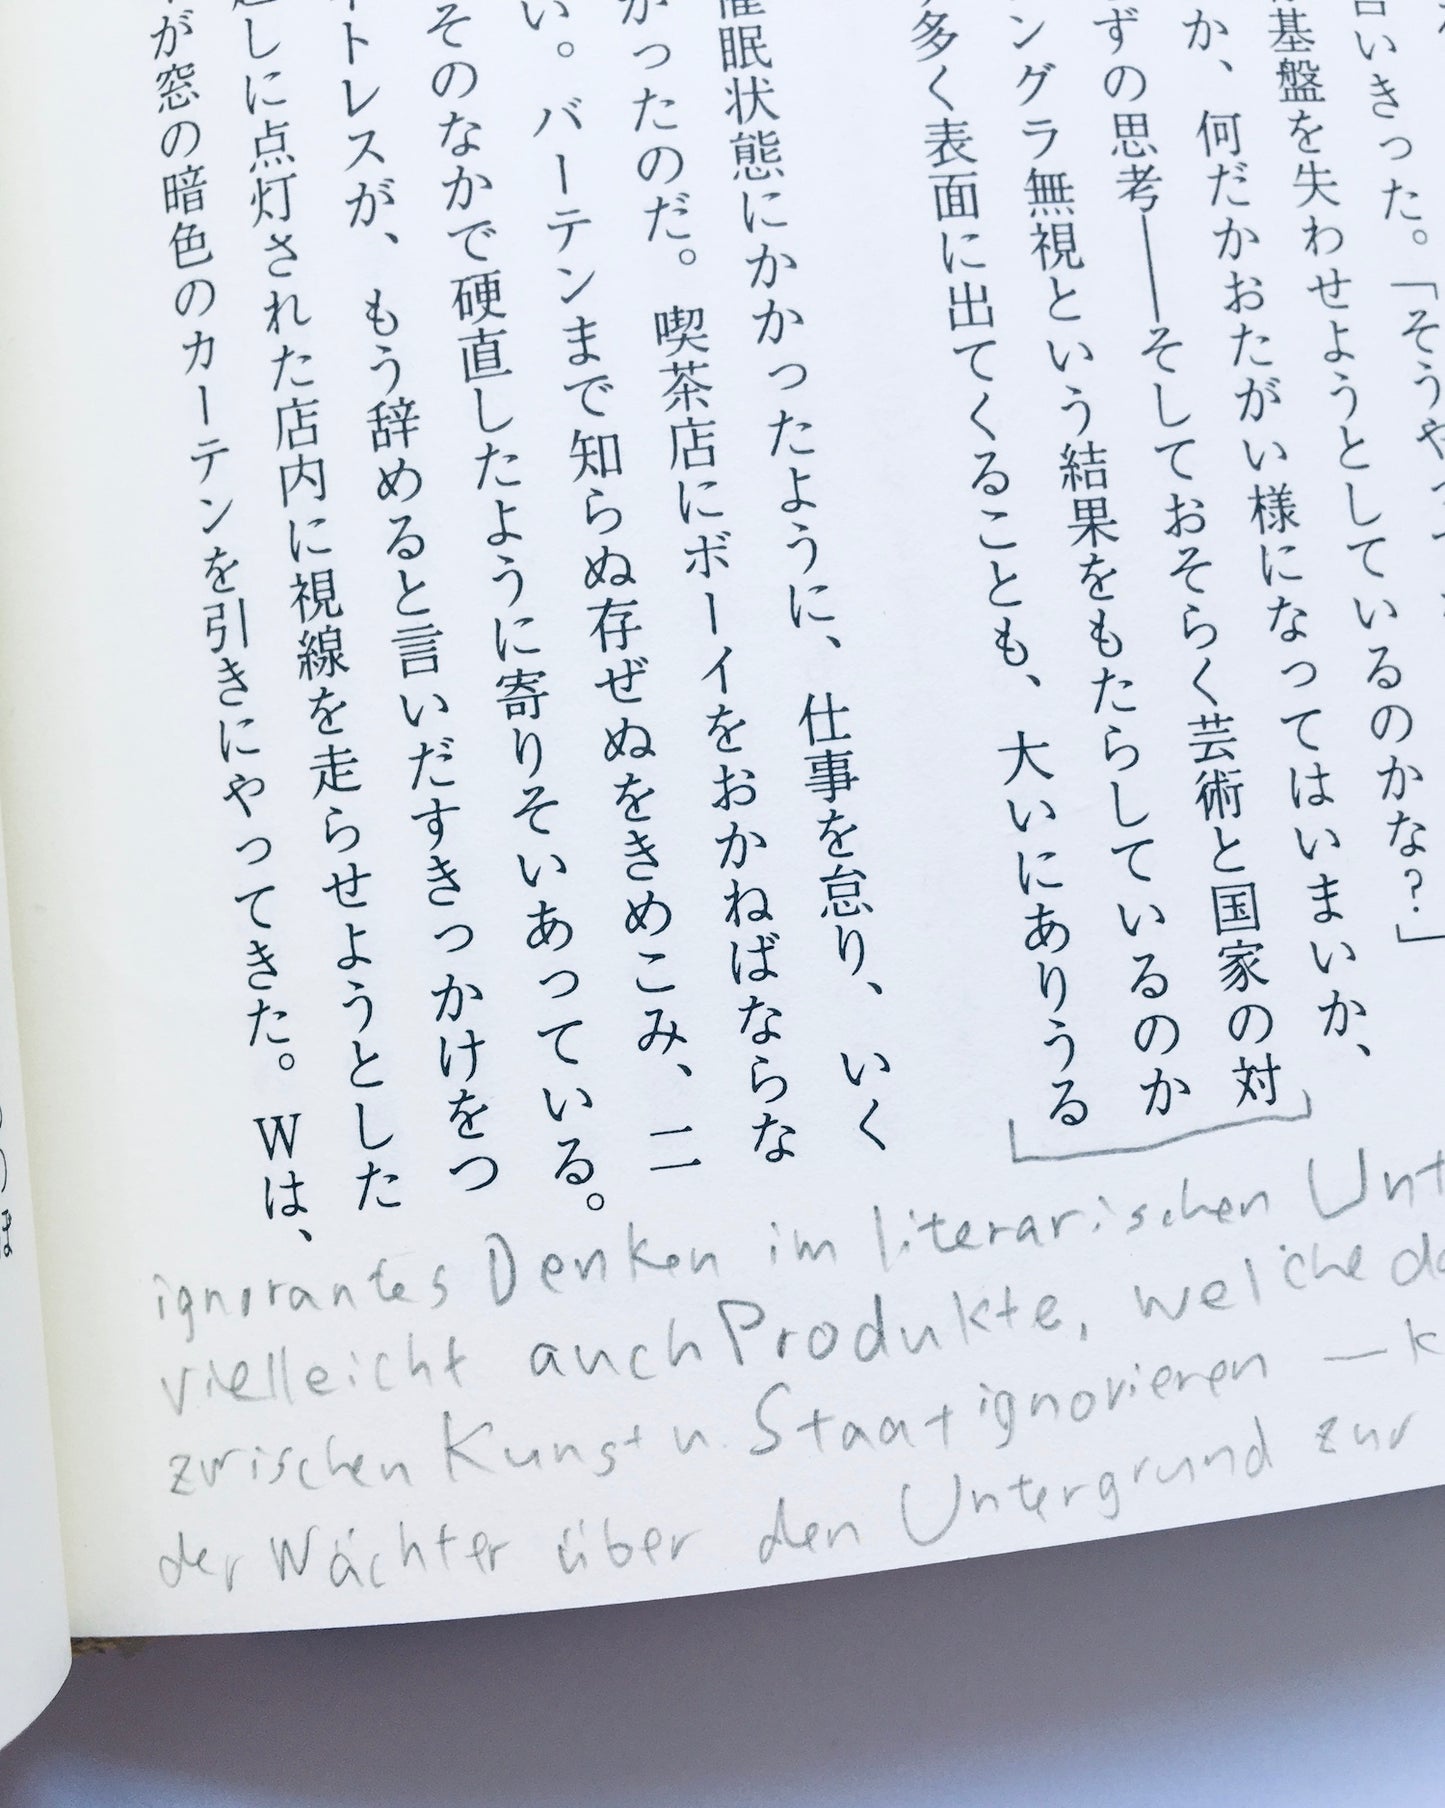 言いきった。「そうやっ
基盤を失わせようとしているのかな?」
か、何だかおたがい様になってはいまいか、
ずの思考――そしておそらく芸術と国家の対
ングラ無視という結果をもたらしているのか
多く表面に出てくることも、大いにありうる
催眠状態にかかったように、仕事を怠り、いく
かったのだ。喫茶店にボーイをおかねばならな
い。バーテンまで知らぬ存ぜぬをきめこみ、二
そのなかで硬直したように寄りそいあっている。
イトレスが、もう辞めると言いだすきっかけをつ
しに点灯された店内に視線を走らせようとした
が窓の暗色のカーテンを引きにやってきた。Wは、
ignorantes Denken im literarischen Unt
vielleicht auch Produkte, welche da
zwischen Kunst u. Staat ignorieren — k
der Wächter über den Untergrund zur